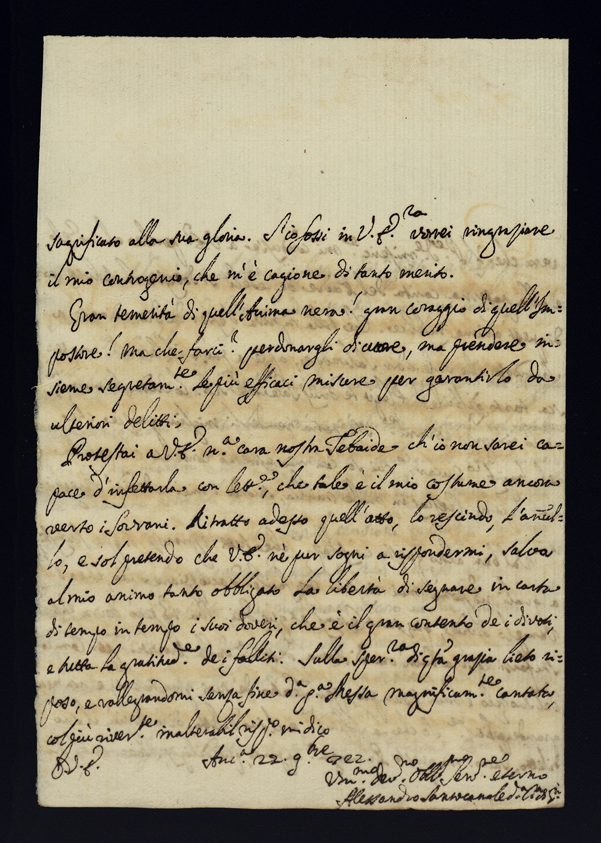 sagrificato alla sua gloria. S'io fossi in V. E.za vorrei ringraziare
il mio controgenio, che m'è cagione di tanto merito.
Gran temerità di quell'Anima nera! gran coraggio di quell'Im=
postore! Ma che farci? perdonargli di cuore, ma prendere in=
sieme segretam.te le più efficaci misure per garantirlo da
ulteriori delitti.
Protestai a V. E. n.a cara nostra Tebaide ch'io non sarei ca=
pace d'infettarla con lett.re, che tale è il mio costume ancora
verso i Sovrani. Ritratto adesso quell'atto, lo rescindo, l'annul=
lo, e sol pretendo che V. E. nè pur sogni a rispondermi, salva
al mio animo tanto obbligato la libertà di segnare in carta
di tempo in tempo i suoi doveri, che è il gran contento de i divoti,
e tutta la gratitud.e de i falliti. Sulla sper.za di q.ta grazia lieto ri=
poso, e rallegrandomi senza fine d.a p.a stessa magnificam.te cantata,
col più river.te inalterabil risp.o mi dico
D. V. E.
Anc.a 22. 9.bre
Um.mo dev.mo Obb.mo Serv.re eterno
Alessandro